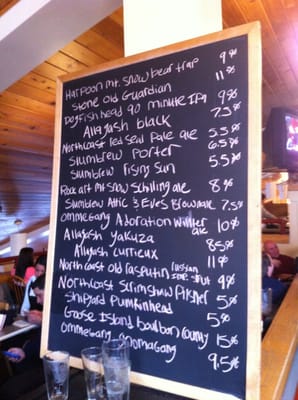 Harpoon Mt. Snow bear trap 9%
Stone Old Guardian 11%
Dogfish head 90 minute IPA 9%
Allagash black 7.5%
Northcoast red Seal Pale ale 5.5%
Slumbrew Porter 6.5%
Slumbrew rising Sun 5.5%
Rock art Mt Snow Schilling ale 8%
Slumbrew Attic & Eves Brown ale 7.5%
Ommegang Adoration Winter ale 10%
Allagash Yakuza 8.5%
Allagash curieux 11%
North Coast Old rasputin (russian Imp. Stout 9%
Northcoast Scrimshaw Pilsner 5%
Shipyard Pumkinhead 5%
Goose Island bourbon County 15%
Ommegang gnomagang 9.5%